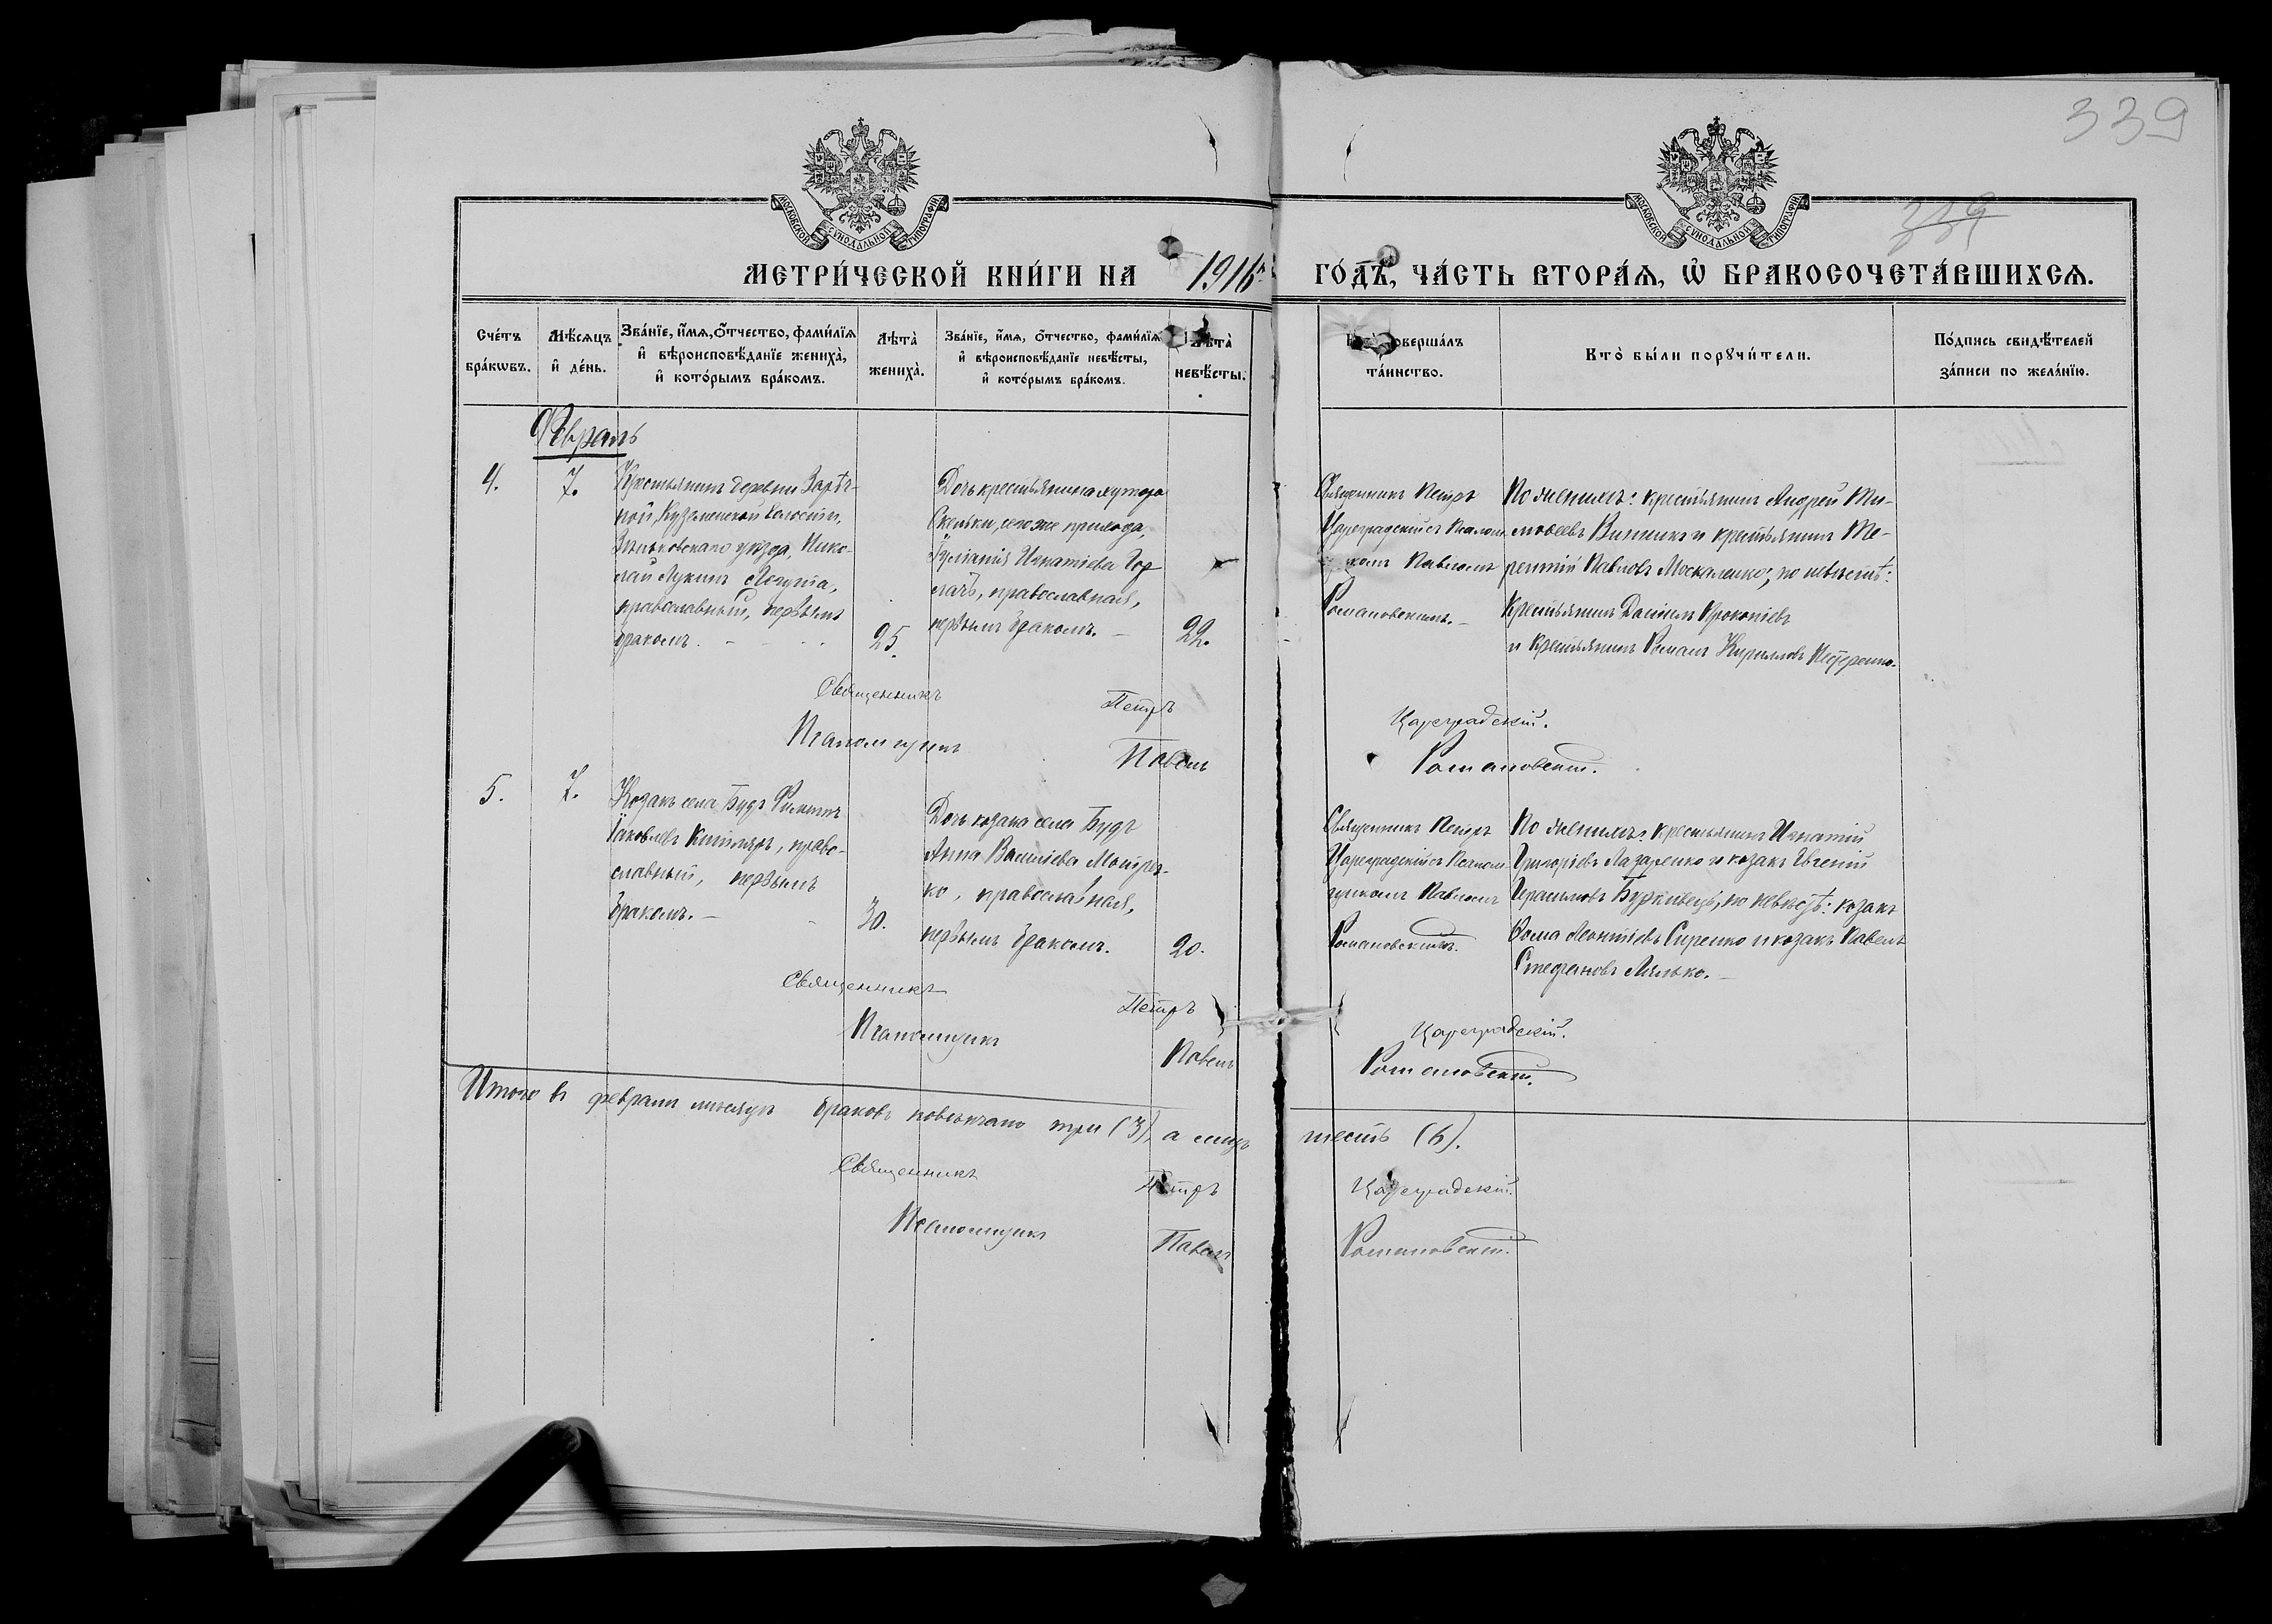 339
339
МОСКОВСКОЙ СѴНОДАЛЬНОЙ ТИПОГРАФІИ
МОСКОВСКОЙ СѴНОДАЛЬНОЙ ТИПОГРАФІИ
МЕТРИ́ЧЕСКОЙ КНИ́ГИ НА 1916й ГО́ДЪ, ЧА́СТЬ ВТОРА́Ѧ, Ѡ БРАКОСОЧЕТА́ВШИХСѦ.
Сче́тъ бра́кѡвъ.
Мѣ́сѧцъ и҆ де́нь.
Зва́нїе, и҆́мѧ, ѻ҆́тчество, фами́лїѧ
и҆ вѣроисповѣ́данїе жениха̀,
и҆ кото́рымъ бра́комъ.
Лѣта̀ жениха̀.
Зва́нїе, и҆́мѧ, ѻ҆́тчество, фами́лїѧ
и҆ вѣроисповѣ́данїе невѣ́сты,
и҆ кото́рымъ бра́комъ.
Лѣта̀ невѣ́сты.
соверша́лъ та́инство.
Кто̀ бы́ли порꙋчи́тели.
По́дпись свидѣ́телей
за́писи по жела́нїю.
Февраль
4.
7.
Крестьянинъ деревни Зарѣч-
ной, Куземенской волости,
Зѣньковскаго уѣзда, Нико-
лай Лукинъ
православный, первымъ
бракомъ.
25.
Дочь крестьянина хутора
Скельки, сего же прихода,
Іуліанія Игнатіева Гор
лачъ, православная,
первымъ бракомъ.
22.
Священникъ Петръ
Цареградскій съ Псалом
щикомъ Павломъ
Романовскимъ.
По женихѣ: крестьянинъ Андрей Ти-
мофеевъ Винникъ и крестьянинъ Те-
рентій Павловъ Москаленко; по невѣстѣ:
Крестьянинъ Даніилъ Прокопіевъ
и крестьянинъ Романъ Кирилловъ Нестеренко.
Священникъ Петръ Цареградскій.
Псаломщикъ Павелъ Романовскій.
5.
7.
Козакъ села Будъ Филиппъ
Іаковлевъ, право-
славный, первымъ
бракомъ.
30.
Дочь козака села Будъ
Анна Василіева Мотрен-
ко, православная,
первымъ бракомъ.
20.
Священникъ Петръ
Цареградскій съ Псалом
щикомъ Павломъ
Романовскимъ.
По женихѣ: крестьянинъ Игнатій
Григоріевъ Лазаренко и козакъ Евгеній
Герасимовъ; по невѣстѣ: козакъ
Ѳома Леонтіевъ Сиренко и козакъ Павелъ
Стефановъ Лялько.
Священникъ Петръ Цареградскій.
Псаломщикъ Павелъ Романовскій.
Итого въ февралѣ мѣсяцѣ браковъ повѣнчано три (3), а лицъ шесть (6).
Священникъ Петръ Цареградскій.
Псаломщикъ Павелъ Романовскій.